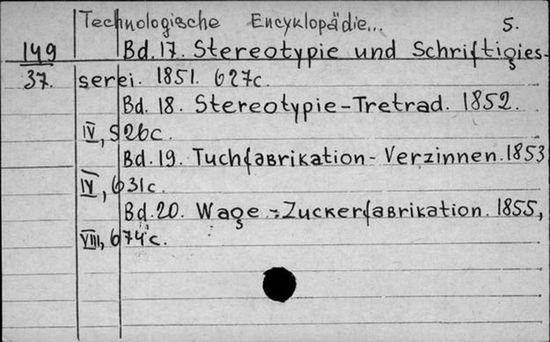 Technologische Encyklopädie... 5.
149 Bd. 17. Stereotypie und Schriftigies-
37. serei. 1851. 627c.
Bd. 18. Stereotypie-Tretrad. 1852.
IV, 526c.
Bd. 19. Tuchfabrikation - Verzinnen. 1853
IV, 631c.
Bd. 20. Wage - Zuckerfabrikation. 1855,
VIII, 674c.